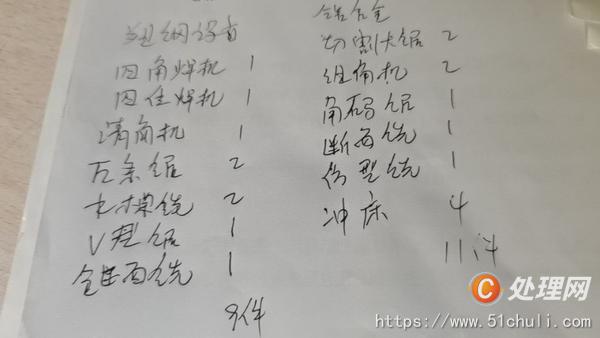 塑钢设备
四角焊机 1
四位焊机 1
清角机 1
压条锯 2
水槽铣 2
V型锯 1
端面铣 1
9件
铝合金
切割大锯 2
组角机 2
角码锯 1
断面铣 1
仿型铣 1
冲床 4
11件
C 处理网
https://www.51chuli.com/